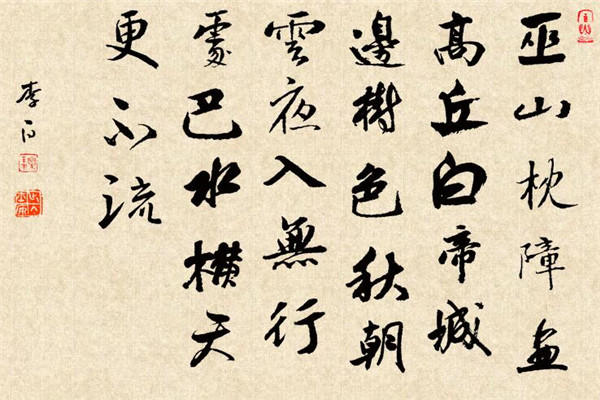 巫山枕障畫
高丘白帝城
邊樹色秋朝
雲夜入無行
處巴水橫天
更不流
李白